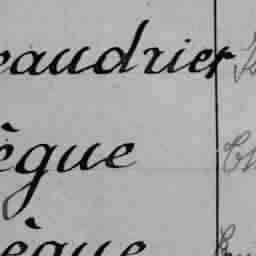 eaudrier
ègue
ègue